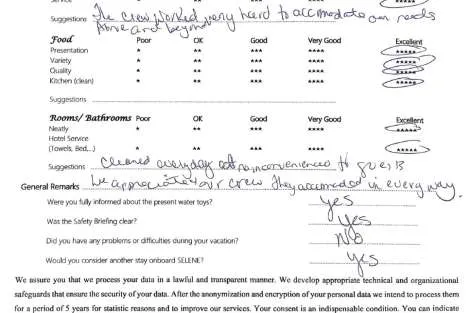 Service
Suggestions The crew worked very hard to accomodate our needs
Above and beyond
Food Poor OK Good Very Good Excellent
Presentation * ** *** **** *****
Variety * ** *** **** *****
Quality * ** *** **** *****
Kitchen (clean) * ** *** **** *****
Suggestions
Rooms/ Bathrooms Poor OK Good Very Good Excellent
Neatly * ** *** **** *****
Hotel Service
(Towels, Bed,...) * ** *** **** *****
Suggestions cleaned everyday at no inconveniences to guests
General Remarks We appreciate our crew They accomoded in every way.
Were you fully informed about the present water toys? yes
Was the Safety Briefing clear? yes
Did you have any problems or difficulties during your vacation? No
Would you consider another stay onboard SELENE? yes
We assure you that we process your data in a lawful and transparent manner. We develop appropriate technical and organizational
safeguards that ensure the security of your data. After the anonymization and encryption of your personal data we intend to process them
for a period of 5 years for statistic reasons and to improve our services. Your consent is an indispensable condition. You can indicate